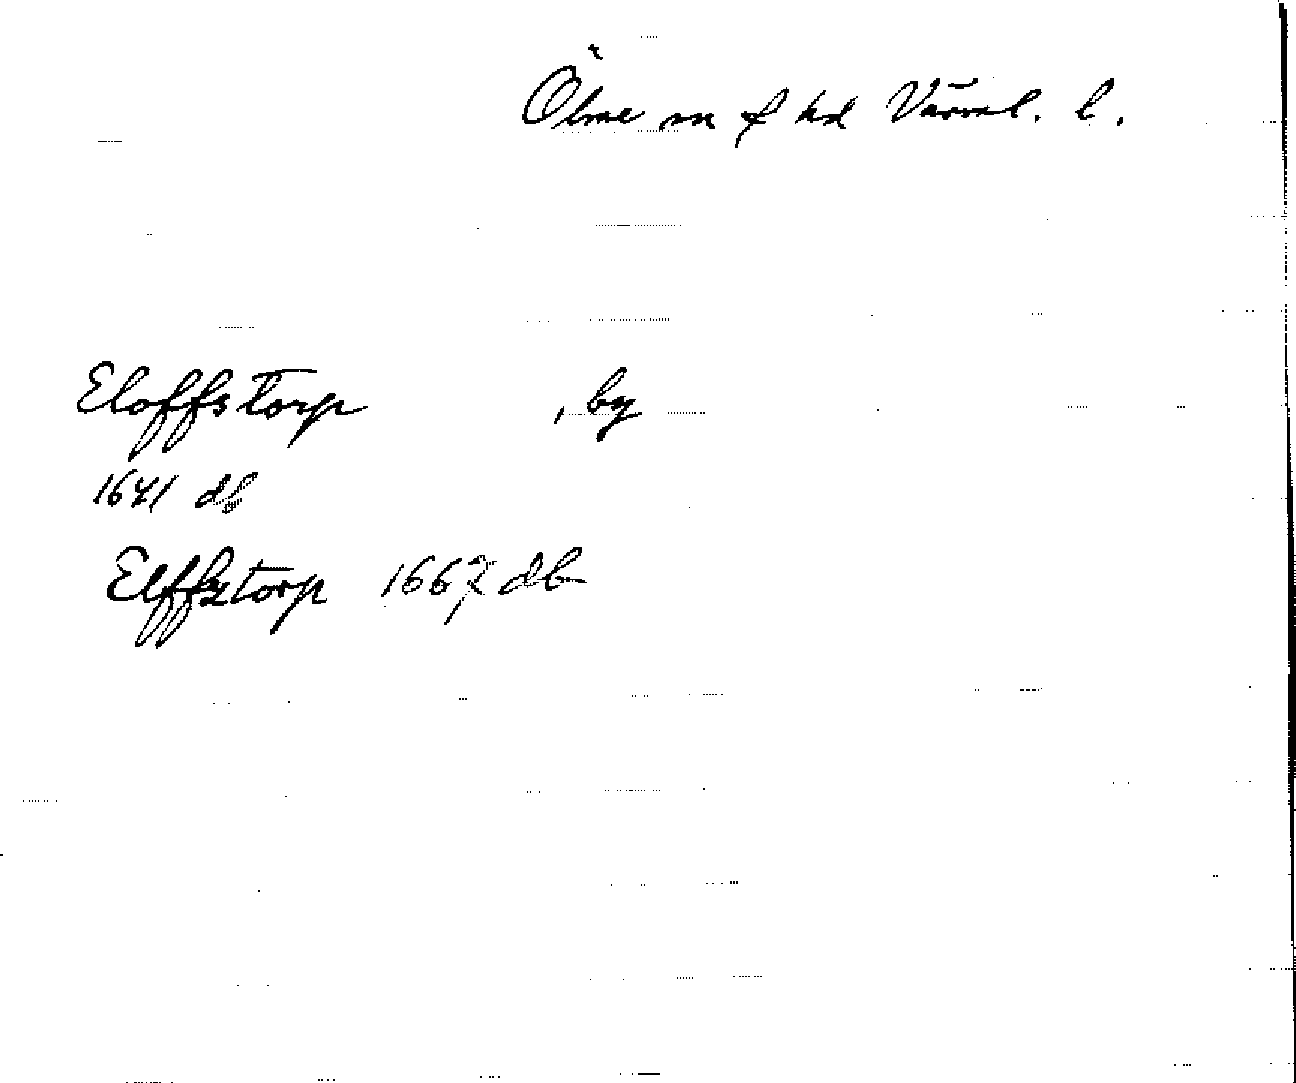 Ölme sn o hd Värml. l.
Eloffstorp , by
1641 db
Elffztorp 1667 db